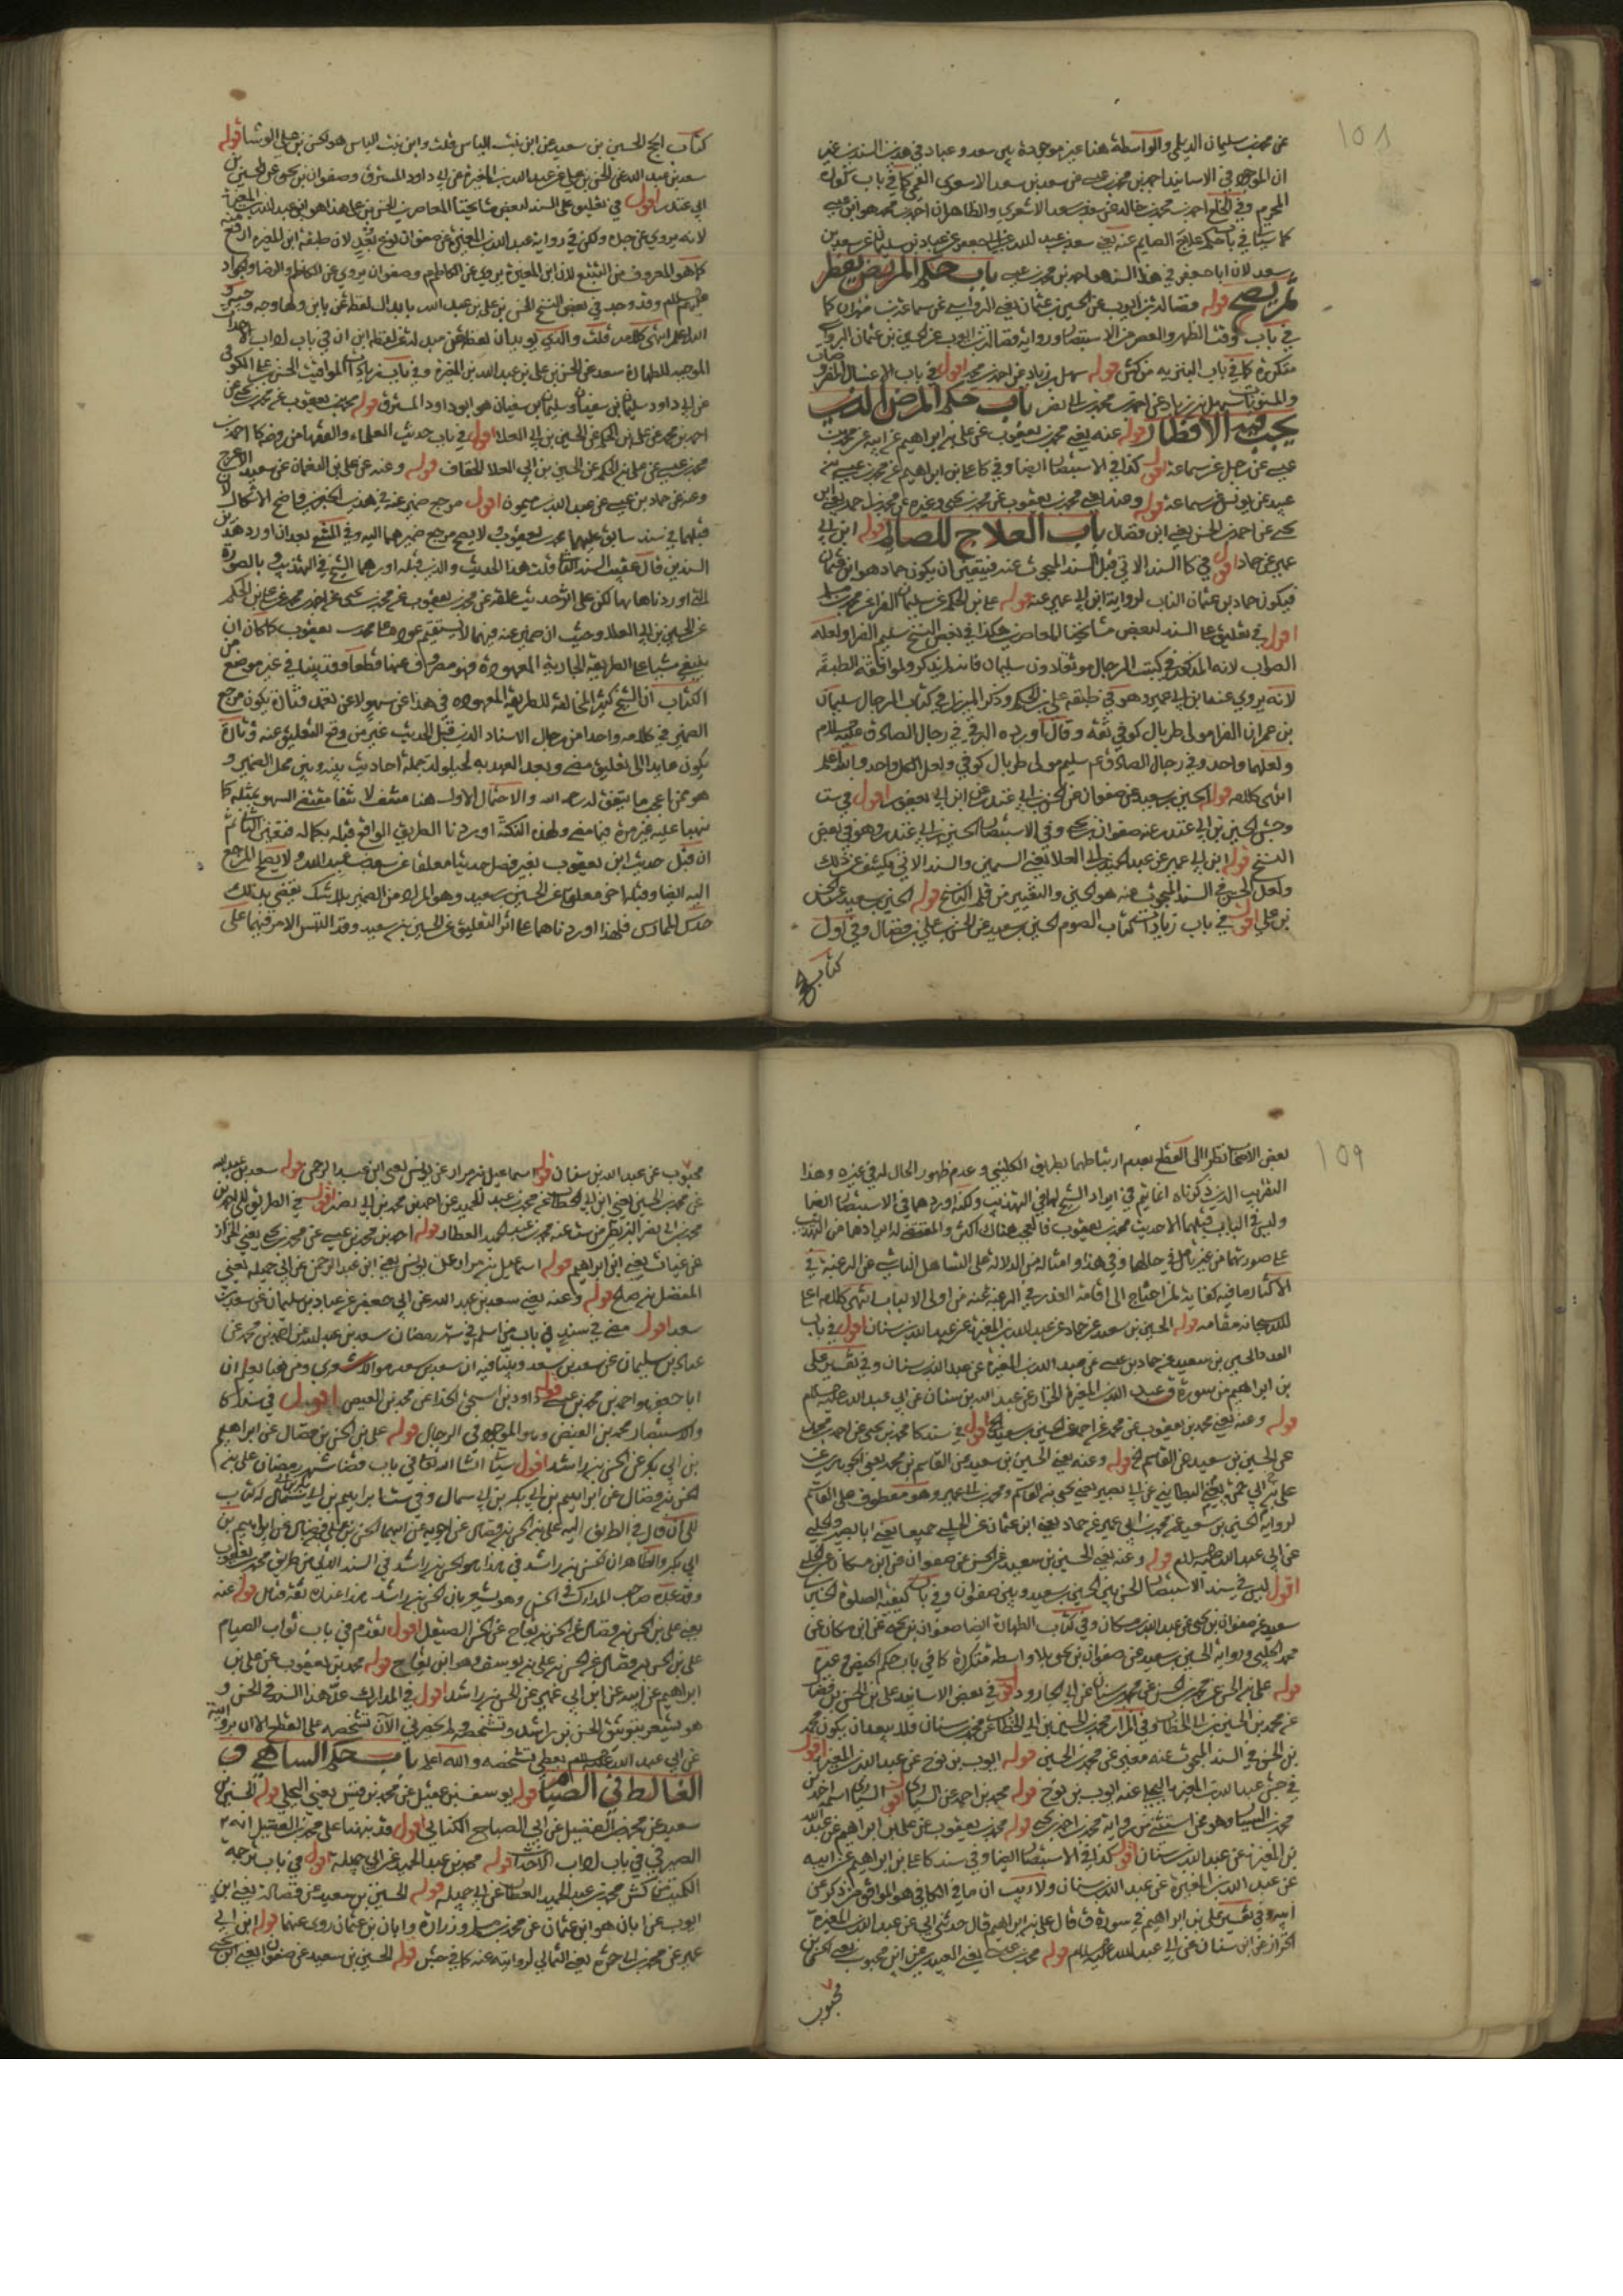 ١٥٨
عن محمد بن سليمان الديلمي والواسطة هنا غير موجودة بين سعد وعباد في هذين السندين غير
ان الموجود في الاسانيد احمد بن محمد بن عيسى عن سعد بن سعد الاشعري القمي كما في باب كفارة
المحرم وفي الخلع احمد بن محمد بن خالد عن سعد بن سعد الاشعري والظاهر ان احمد بن محمد هو ابن عيسى
كما سيأتي في باب حكم علاج الصايم عنه يعني سعد بن عبد الله عن ابي جعفر عن عباد بن سليمان عن سعد بن
سعد لان ابا جعفر في هذا السند هو احمد بن محمد بن عيسى باب حكم المريض يفطر
ثم يصح قوله فضالة بن ايوب عن الحسين بن عثمان يعني الرواسي عن سماعة بن مهران كما
في باب وقت الظهر والعصر من الاستبصار ورواية فضالة بن ايوب عن الحسين بن عثمان الرواسي
متكررة كما في باب القنوت قوله سهل بن زياد عن احمد بن محمد اقول في باب الاغسال المفروضات
والمسنونات سهل بن زياد عن احمد بن محمد بن ابي نصر باب حكم المرض الذي
يجب فيه الافطار قوله عنه يعني محمد بن يعقوب عن علي بن ابراهيم عن ابيه عن محمد بن
عيسى عن رجل عن سماعة اقول كذا في الاستبصار ايضا وفي كا علي بن ابراهيم عن محمد بن عيسى بن
عبيد عن يونس عن سماعة قوله وعنه يعني محمد بن يعقوب عن محمد بن يحيى وغيره عن محمد بن احمد يعني ابن
يحيى عن احمد بن الحسن يعني ابن فضال باب العلاج للصايم قوله ابن ابي
عمير عن حماد اقول في كا السند الاتي قبل السند المبحوث عنه فيتعين ان يكون حماد هو ابن عثمان
فيكون حماد بن عثمان الناب لرواية ابن ابي عمير عنه قوله علي بن الحكم عن سليمان الفرا عن محمد بن مسلم
اقول في تعليق على السند لبعض مشايخنا المعاصرين هكذا في بعض النسخ سليم الفرا ولعله
الصواب لانه المذكور في كتب الرجال موثقا دون سليمان فانه لم يذكر ولموافقة الطبقة
لانه يروي عنه ابن ابي عمير وهو في طبقة علي بن الحكم وذكر الميرزا في كتاب الرجال سليمان
بن عمران الفرا مولى طربال كوفي ثقة وقال اورده البرقي في رجال الصادق عليه السلام
ولعلهما واحد وفي رجال الصادق ع سليم مولى طربال كوفي ولعل الكل واحد والله اعلم
انتهى كلامه قوله الحسين بن سعيد عن صفوان عن الحسن بن ابي غندر عن ابن ابي يعفور اقول في ست
وجش الحسين بن ابي غندر عنه صفوان بن يحيى وفي الاستبصار الحسين بن ابي غندر وهو في بعض
النسخ قوله ابن ابي عمير عن عبد الحميد بن ابي العلا يعني السمين والسند الاتي يكشف عن ذلك
ولعل الحسن في السند المبحوث عنه هو الحسين والتغيير من قلم الناسخ قوله الحسين بن سعيد عن الحسن
بن علي اقول في باب زيادات كتاب الصوم الحسين بن سعيد عن الحسن بن علي بن فضال وفي اول
كتاب الحج
كتاب الحج الحسين بن سعيد عن ابن بنت الياس قلت وابن بنت الياس هو الحسن بن علي الوشا قوله
سعد بن عبد الله عن الحسن بن علي عن عبد الله بن المغيرة عن ابي داود المسترق وصفوان بن يحيى عن الحسين بن
ابي غندر اقول في تعليق على السند لبعض مشايخنا المعاصرين الحسن بن علي هذا هو ابن عبد الله بن المغيرة
لانه يروي عن جده ولكن في رواية عبد الله بن المغيرة عن صفوان نوع بعد لان طبقة ابن المغيرة ارفع منه
كما هو المعروف من التتبع لان ابن المغيرة يروي عن الكاظم وصفوان يروي عن الكاظم والرضا والجواد
عليهم السلم وقد وجد في بعض النسخ الحسن بن علي بن عبد الله بابدال لفظ عن بابن ولها وجه وجيه و
الله اعلم انتهى كلامه قلت والذي يؤيد ان لفظ عن مبدلة عن لفظ ابن ان في باب اداب الاحداث
الموجبة للطهارة سعد عن الحسن بن علي بن عبد الله بن المغيرة وفي باب زيادات المواقيت الحسن بن علي الكوفي
عن ابي داود سليمان بن سفيان وسليمان بن سفيان هو ابو داود المسترق قوله محمد بن يعقوب عن محمد بن يحيى عن
احمد بن محمد عن علي بن الحكم عن الحسين بن ابي العلا اقول في باب حديث العلماء والفقها من روضة كا احمد بن
محمد بن عيسى عن علي بن الحكم عن الحسين بن ابي العلا الخفاف قوله وعنه عن علي بن النعمان عن سعيد الاعرج
وعنه عن حماد بن عيسى عن عبد الله بن ميمون اقول مرجع ضمير عنه في هذين الخبرين واضح الاشكال لان
قبلهما في سند سابق عليهما محمد بن يعقوب ولا يصح مرجع ضميرهما اليه وفي المنتقى بعد ان اورد هذين
السندين قال عقيب السند الثاني قلت هذا الحديث والذي قبله اوردهما الشيخ في التهذيب بالصورة
التي اوردناها بها لكن على اثر حديث علقه عن محمد بن يعقوب عن محمد بن يحيى عن احمد بن محمد عن علي بن الحكم
عن الحسين بن ابي العلا وحيث ان ضمير عنه فيهما لا يستقيم عوده على محمد بن يعقوب كما كان ان
ينبغي مشيا على الطريقة الجارية المعهودة فهو مصروف عنها قطعا وقد بينا في غير موضع من
الكتاب ان الشيخ كثير المخالفة للطريقة المعهوده في هذا عن سهو لا عن تعمد فتارة يكون مرجع
الضمير في كلامه واحدا من رجال الاسناد الذي قبل الحديث غير من وقع التعليق عنه وتارة
يكون عايدا الى تعليق مضى وبعد العهد به لحيلولة جملة احاديث بينه وبين محل الضمير و
هو من اعجب ما يتفق له رحمه الله والاحتمال الاول هنا منتف لانتفا مقتضي السهو بمثله كما
نبهنا عليه غير مرة فيما مضى ولهذه النكتة اوردنا الطريق الواقع قبله بكماله فتعين الثاني ثم
ان قبل حديث ابن يعقوب بغير فصل حديثا معلقا عن سعد بن عبد الله ولا يصلح المرجع
اليه ايضا وقبله اخر معلق عن الحسين بن سعيد وهو المراد من الضمير بلا شك يقضي بذلك
حدس الممارس فلهذا اوردناهما على اثر التعليق عن الحسين بن سعيد وقد التبس الامر فيهما على
١٥٩
بعض الاصحاب نظرا الى القطع بعدم ارتباطهما بطريق الكليني وعدم ظهور الحال له في غيره وهذا
التقريب الذي ذكرناه انما يتم في ايراد الشيخ لهما في التهذيب ولكنه اوردهما في الاستبصار ايضا
وليس في الباب قبلهما الا حديث محمد بن يعقوب فالعجب هناك اكثر والمقتضي له ايرادهما من التهذيب
على صورتهما من غير تأمل في حالهما وفي هذا وامثاله من الدلالة على التساهل الناشي عن الرغبة في
الاكثار ما فيه كفاية لمن احتاج الى اقامة العذر في الرغبة عنه من اولي الالباب انتهى كلامه اعلى
الله سبحانه مقامه قوله الحسين بن سعيد عن حماد عن عبد الله بن المغيرة عن عبد الله بن سنان اقول في باب
العدد الحسين بن سعيد عن حماد بن عيسى عن عبد الله بن المغيرة عن عبد الله بن سنان وفي تفسير علي
بن ابراهيم من سورة ق عبد الله بن المغيرة الخزاز عن عبد الله بن سنان عن ابي عبد الله عليه السلام
قوله وعنه يعني محمد بن يعقوب عن محمد عن احمد عن الحسين بن سعيد اقول في سند كا محمد بن يحيى عن احمد بن محمد
عن الحسين بن سعيد عن القاسم قوله وعنه يعني الحسين بن سعيد عن القاسم بن محمد يعني الجوهري عن
علي بن ابي حمزة يعني البطايني عن ابي بصير يعني يحيى بن القاسم ومحمد بن ابي عمير وهو معطوف على القاسم
لرواية الحسين بن سعيد عن محمد بن ابي عمير عن حماد يعني ابن عثمان عن الحلبي جميعا يعني ابا بصير والحلبي
عن ابي عبد الله عليه السلام قوله وعنه يعني الحسين بن سعيد عن الحسن عن صفوان عن ابن مسكان عن الحلبي
اقول ليس في سند الاستبصار الحسن بين الحسين بن سعيد وبين صفوان وفي باب كيفية الصلوة الحسين بن
سعيد عن صفوان بن يحيى عن عبد الله بن مسكان وفي كتاب الطهارة ايضا صفوان بن يحيى عن ابن مسكان عن
محمد الحلبي ورواية الحسين بن سعيد عن صفوان بن يحيى بلا واسطة متكررة كما في باب حكم الحيض وغيره
قوله علي بن الحسن عن محمد بن الحسين عن محمد بن سنان عن ابي الجارود اقول في بعض الاسانيد علي بن الحسن بن فضال
عن محمد بن الحسين بن ابي الخطاب وفي المزار محمد بن الحسين بن ابي الخطاب عن محمد بن سنان فلا يبعد ان يكون محمد
بن الحسن في السند المبحوث عنه مغير عن محمد بن الحسين قوله ايوب بن نوح عن عبد الله بن المغيرة اقول
في جش عبد الله بن المغيرة البجلي عنه ايوب بن نوح قوله محمد بن احمد عن السياري اقول السياري اسمه احمد بن
محمد بن السيار وهو ممن استثني من رواية محمد بن احمد بن يحيى قوله محمد بن يعقوب عن علي بن ابراهيم عن عبد الله
بن المغيرة عن عبد الله بن سنان اقول كذا في الاستبصار ايضا وفي سند كا علي بن ابراهيم عن ابيه
عن عبد الله بن المغيرة عن عبد الله بن سنان ولا ريب ان ما في الكافي هو الموافق من ذكر عن
ابيه وفي تفسير علي بن ابراهيم في سورة ق قال علي بن ابراهيم قال حدثني ابي عن عبد الله بن المغيرة
الخزاز عن ابن سنان عن ابي عبد الله عليه السلام قوله محمد بن عيسى يعني العبيدي عن ابن محبوب يعني الحسن بن
محبوب
محبوب عن عبد الله بن سنان قوله اسماعيل بن مرار عن يونس يعني ابن عبد الرحمن قوله سعد بن عبد الله
عن محمد بن الحسين يعني ابن ابي الخطاب عن محمد بن عبد الحميد عن احمد بن محمد بن ابي نصر اقول في الطريق الى احمد بن
محمد بن ابي نصر البزنطي من ست عنه محمد بن عبد الحميد العطار قوله احمد بن محمد بن عيسى عن محمد بن يحيى يعني الخزاز
عن غياث يعني ابن ابراهيم قوله اسماعيل بن مرار عن يونس يعني ابن عبد الرحمن عن ابي جميلة يعني
المفضل بن صالح قوله وعنه يعني سعد بن عبد الله عن ابي جعفر عن عباد بن سليمان عن سعد بن
سعد اقول مضى في سند في باب من اسلم في شهر رمضان سعد بن عبد الله عن احمد بن محمد عن
عباد بن سليمان عن سعد بن سعد وبينا فيه ان سعد بن سعد هو الاشعري ومن هنا يعلم ان
ابا جعفر هو احمد بن محمد بن عيسى قوله داود بن اسحق الحذا عن محمد بن الفيض اقول في سند كا
والاستبصار محمد بن الفيض وهو الموجود في الرجال قوله علي بن الحسن بن فضال عن ابراهيم
بن ابي بكر عن الحسن بن راشد اقول سيأتي انشا الله تعالى في باب قضا شهر رمضان علي بن
الحسن بن فضال عن ابراهيم بن ابي بكر بن ابي سمال وفي ست ابراهيم بن ابي بكر بن ابي سمال له كتاب
الى ان قال في الطريق اليه علي بن الحسن بن فضال عن اخويه عن ابيهما الحسن بن علي بن فضال عن ابراهيم بن
ابي بكر والظاهر ان الحسن بن راشد في هذا هو الحسن بن راشد في السند الاتي من طريق محمد بن يعقوب
وقد عده صاحب المدارك في الحسن وهو يشعر بان الحسن بن راشد هذا عنده ثقة فتأمل قوله عنه
يعني علي بن الحسن بن فضال عن الحسن بن بقاح عن الحسن الصيقل اقول تقدم في باب ثواب الصيام
علي بن الحسن بن فضال عن الحسن بن علي بن يوسف وهو ابن بقاح قوله محمد بن يعقوب عن علي بن
ابراهيم عن ابيه عن ابن ابي عمير عن الحسن بن راشد اقول في المدارك عد هذا السند في الحسن و
هو يشعر بتوثيق الحسن بن راشد وتشخصه ولم يحضرني الان تشخصه على القطع الا ان روايته
عن ابي عبد الله عليه السلام يعطي تشخصه والله اعلم باب حكم الساهي و
الغالط في الصيام قوله يوسف بن عقيل عن محمد بن قيس يعني البجلي قوله الحسين بن
سعيد عن محمد بن الفضيل عن ابي الصباح الكناني اقول قد نبهنا على محمد بن الفضيل انه
الصيرفي في باب اداب الاحداث قوله محمد بن عبد الحميد عن ابي جميلة اقول في باب ترجمة
الكميت من كش محمد بن عبد الحميد العطار عن ابي جميلة قوله الحسين بن سعيد عن فضالة يعني ابن
ايوب عن ابان هو ابن عثمان عن محمد بن مسلم وزرارة وابان بن عثمان روى عنهما قوله ابن ابي
عمير عن محمد بن ابي حمزة يعني الثمالي لروايته عنه كما في جش قوله الحسين بن سعيد عن صفوان يعني ابن يحيى